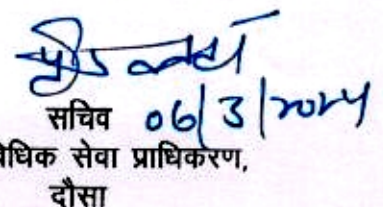 सचिव 06/3/2024
विधिक सेवा प्राधिकरण,
दौसा